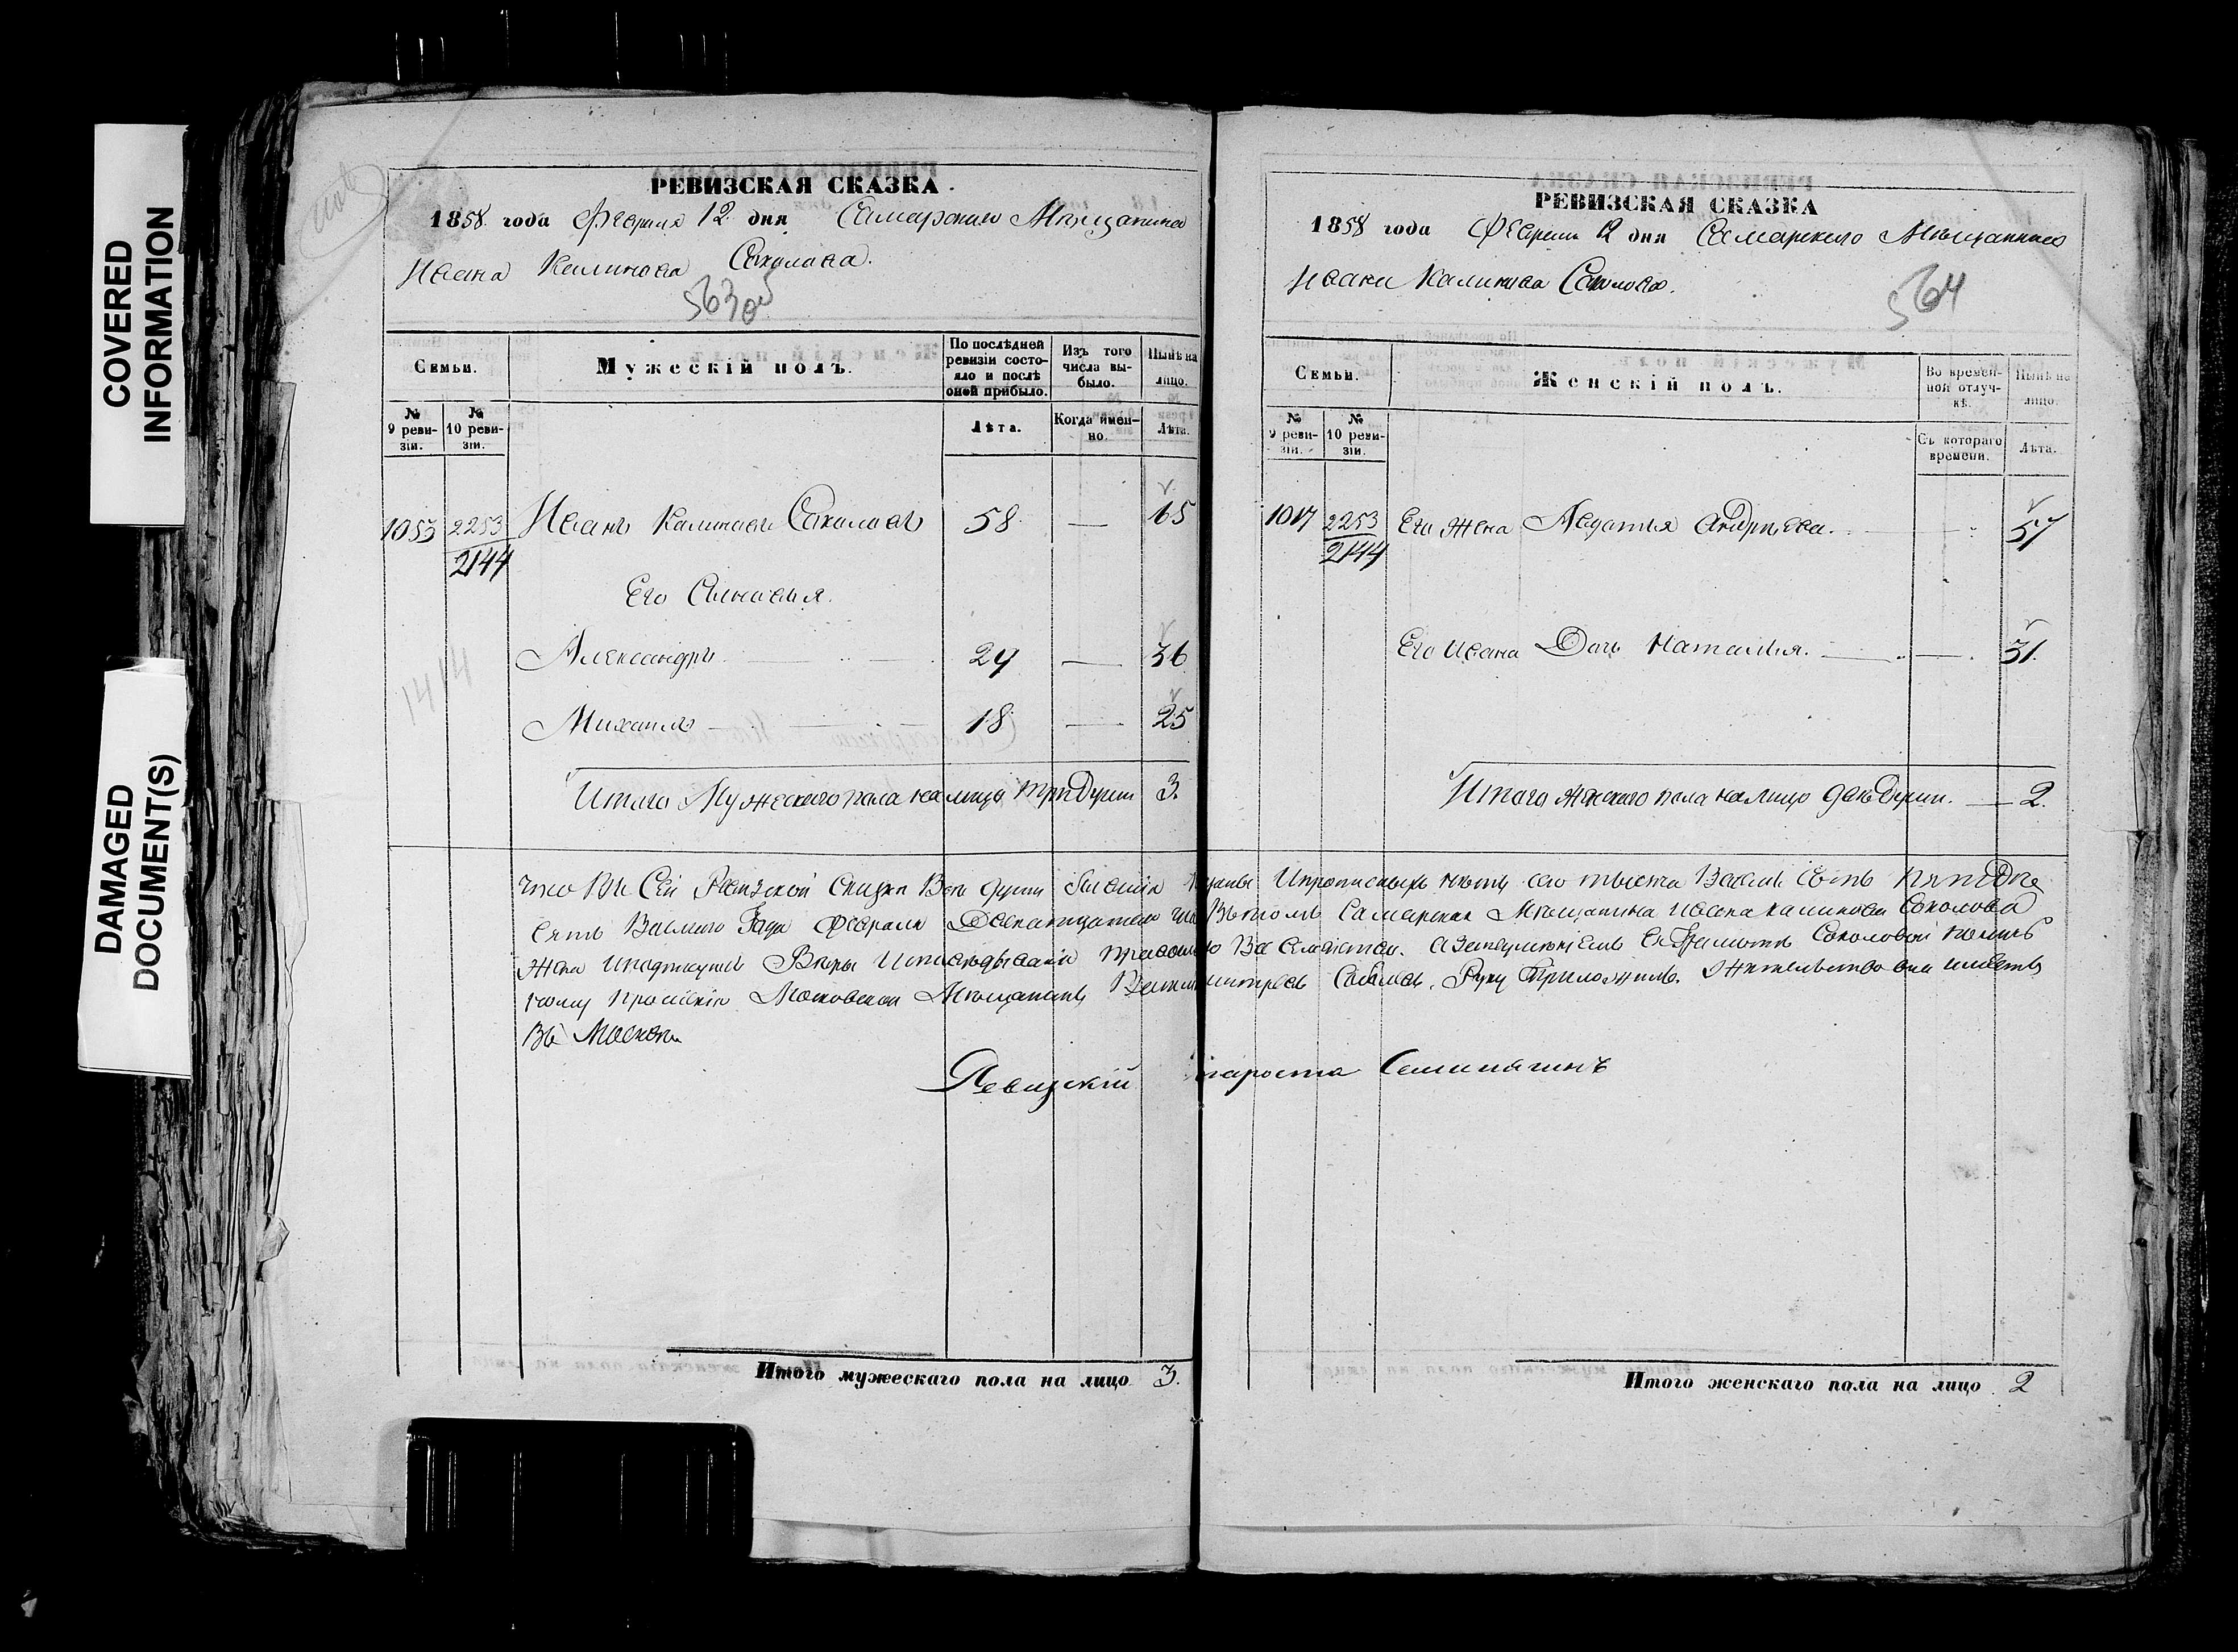 COVERED INFORMATION
DAMAGED DOCUMENT(S)
РЕВИЗСКАЯ СКАЗКА.
1858 года Февраля 12 дня Самарского Мѣщанина
Ивана Калинова Соколова.
563 об
Семьи.
Мужескій полъ.
По послѣдней ревизіи состояло и послѣ оной прибыло.
Изъ того числа выбыло.
Нынѣ на лицо.
№ 9 ревизіи.
№ 10 ревизіи.
Лѣта.
Когда именно.
Лѣта.
1053 2253 Иванъ Калиновъ Соколовъ 58 — 65
2144
Его Сыновья.
Александръ 29 — 36
Михаилъ — 18 — 25
1414
Итого Мужескаго пола налицо три души 3.
РЕВИЗСКАЯ СКАЗКА
1858 года Февраля 12 дня Самарского Мѣщанина
Ивана Калинова Соколова.
564
Семьи.
Женскій полъ.
Во временной отлучкѣ.
Нынѣ на лицо.
№ 9 ревизіи.
№ 10 ревизіи.
Съ котораго времени.
Лѣта.
1017 2253 Его Жена Авдотья Андрѣева. 57
2144
Его Ивана Дочь Наталья. 31.
Итого Женскаго пола налицо двѣ души. — 2.
что Въ Сей Ревизской Сказкѣ Всѣ души Ипрописныхъ нѣтъ тысяча Восемь Сотъ пятьде
сятъ Восьмого Года Февраля Двенатцатого Втомъ Самарская Мѣщанина Ивана Калинова Соколова
Жена Соколовой
тому прошенію Московской Мѣщанинъ Руку Приложилъ. Жительство они имѣютъ
Въ Москвѣ
Ревизскій Староста
Итого мужескаго пола на лицо 3.
Итого женскаго пола на лицо 2